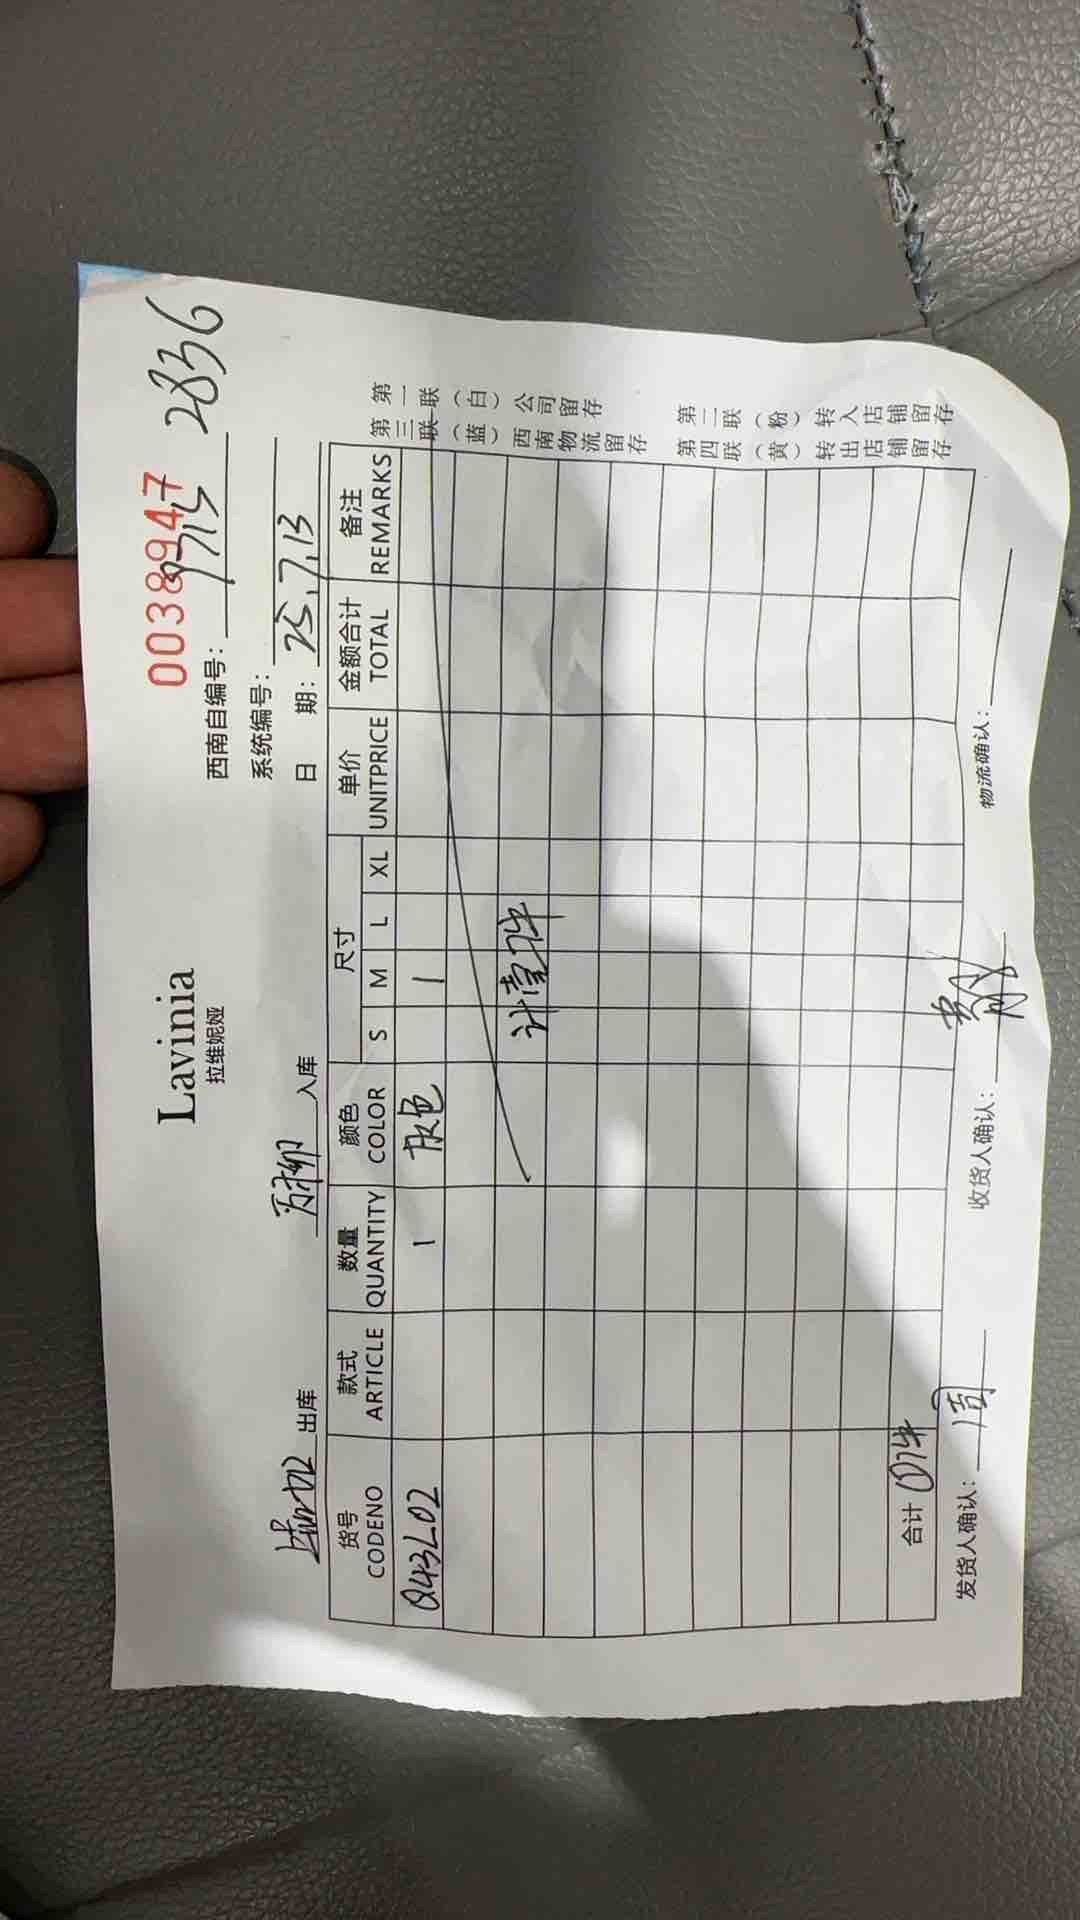 Lavinia
拉维妮娅
0038947
西南自编号： 9715 2836
系统编号：
出库 万柳 入库 日 期： 25.7.13
货号 款式 数量 颜色 尺寸 单价 金额合计 备注
CODENO ARTICLE QUANTITY COLOR S M L XL UNITPRICE TOTAL REMARKS
Q43L02 1 灰色 1
计壹件
合计 ①件
发货人确认： 收货人确认： 物流确认：
第一联（白）公司留存
第三联（蓝）西南物流留存
第二联（粉）转入店铺留存
第四联（黄）转出店铺留存